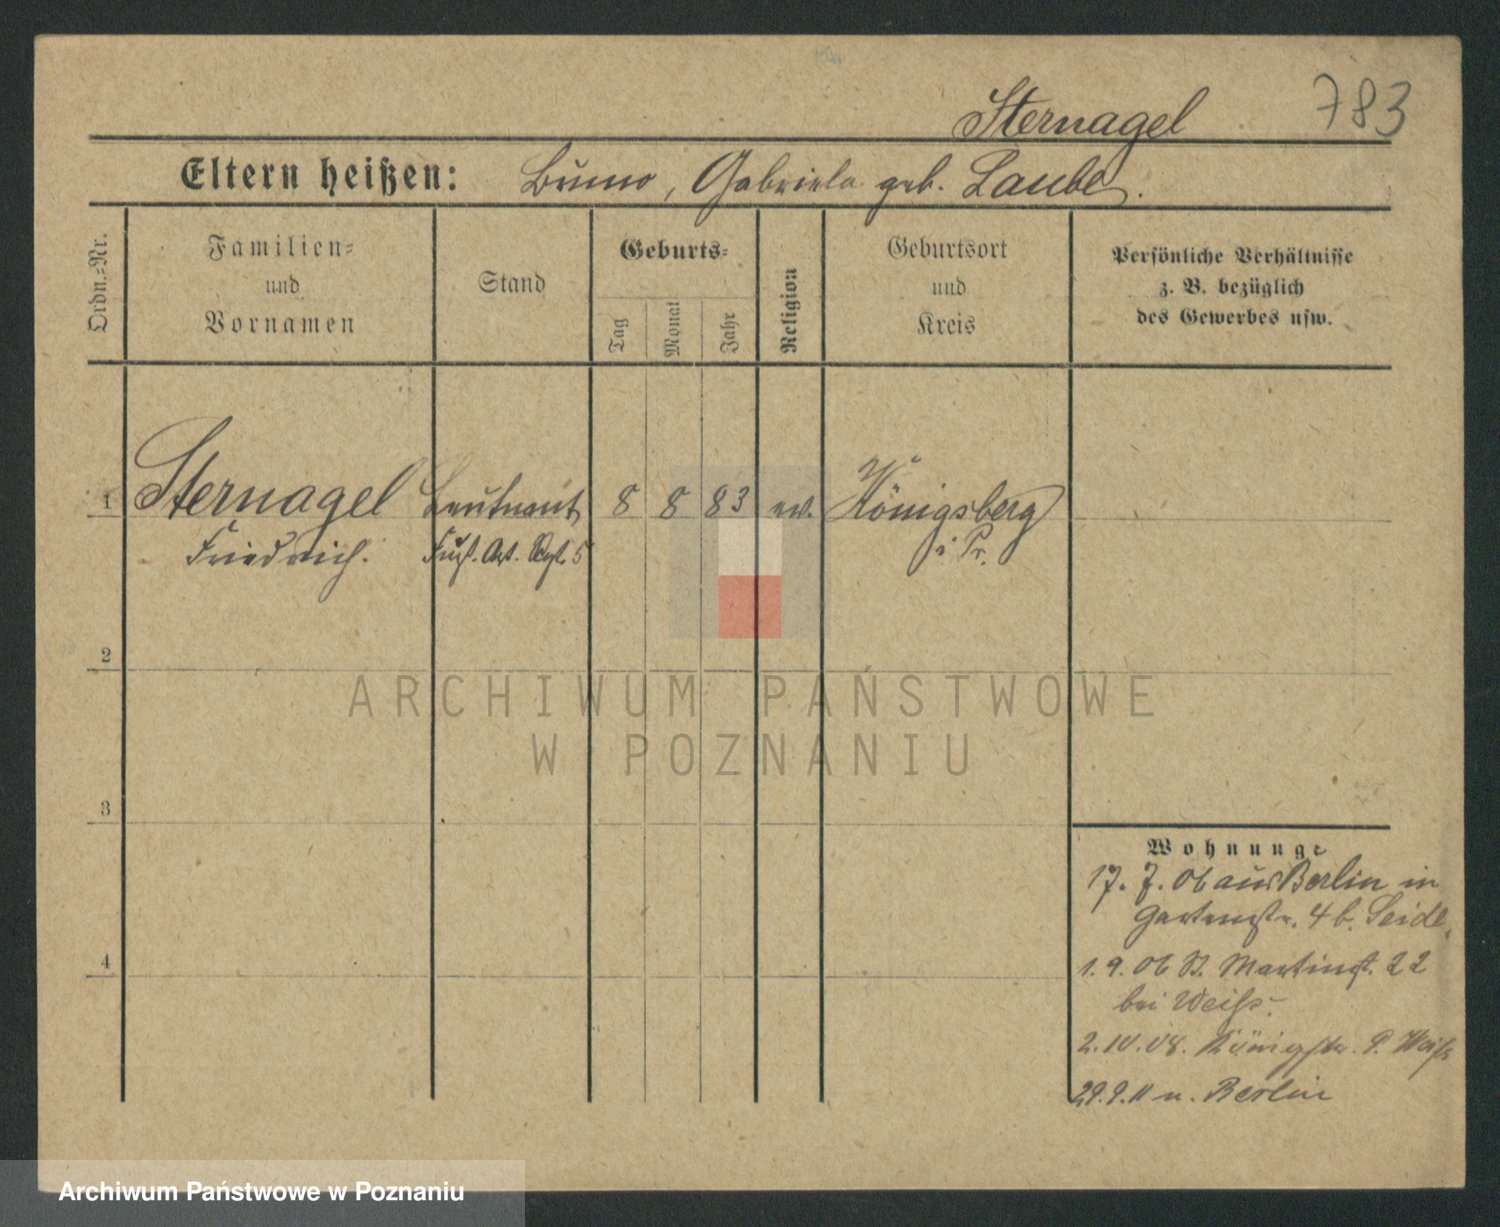 Sternagel 783
Eltern heißen: Bruno, Gabriela geb. Laube.
Ordn.=Nr.
Familien=
und
Vornamen
Stand
Geburts=
Tag
Monat
Jahr
Religion
Geburtsort
und
Kreis
Persönliche Verhältnisse
z. B. bezüglich
des Gewerbes usw.
1 Sternagel Leutnant 8 8 83 ev. Königsberg
Friedrich. Fußt. Art. Rgt. 5 i. Pr.
2
3
4
Wohnung
17. 7. 06 aus Berlin in
Gartenstr. 4 b. Seidl
1. 9. 06 St. Martinst. 22
bei Weiß
2. 10. 08. Königstr.
29. 9. 11 n. Berlin
ARCHIWUM PAŃSTWOWE
W POZNANIU
Archiwum Państwowe w Poznaniu